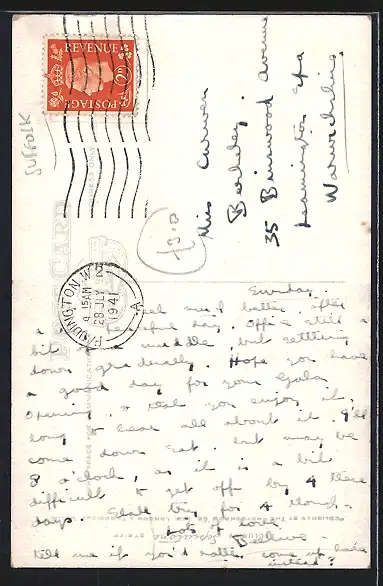 REVENUE
POSTAGE
2D
Suffolk
£3.0
PADDINGTON. W.2
9.15AM
28 JLY
1941
A
POST CARD
Miss Curwen
Berkeley.
35 Binswood Avenue
Leamington Spa
Warwickshire
Sunday.
feel much better after
a day. Office still a
bit of a muddle, but settling
down gradually. Hope you have
a good day for your Gala
Opening, & that you enjoy it.
long to hear all about it. I'll
come down Sat. but may be
8 o'clock, as it is a bit
difficult to get off by 4 these
days. Shall try for 4 though.
Lots of love.
tell me if you'd rather come up here
instead?